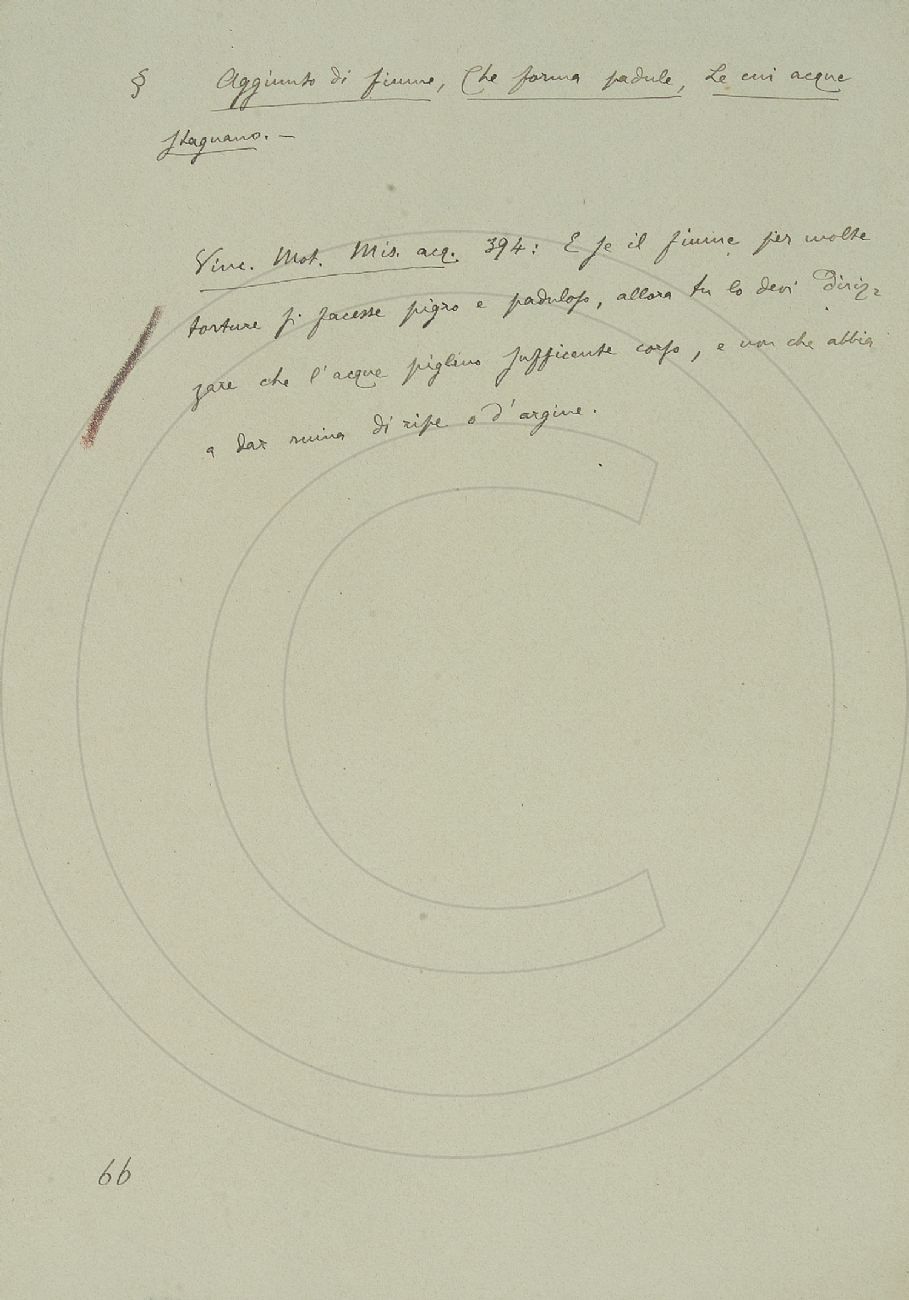 § Aggiunto di fiume, Che forma padule, Le cui acque
stagnano. —
Vinc. Mot. Mis. acq. 394: E se il fiume per molte
torture si facesse pigro e paduloso, allora tu lo devi diriz-
zare che l'acque piglino sufficente corso, e non che abbia
a dar ruina di ripe o d'argine.
66